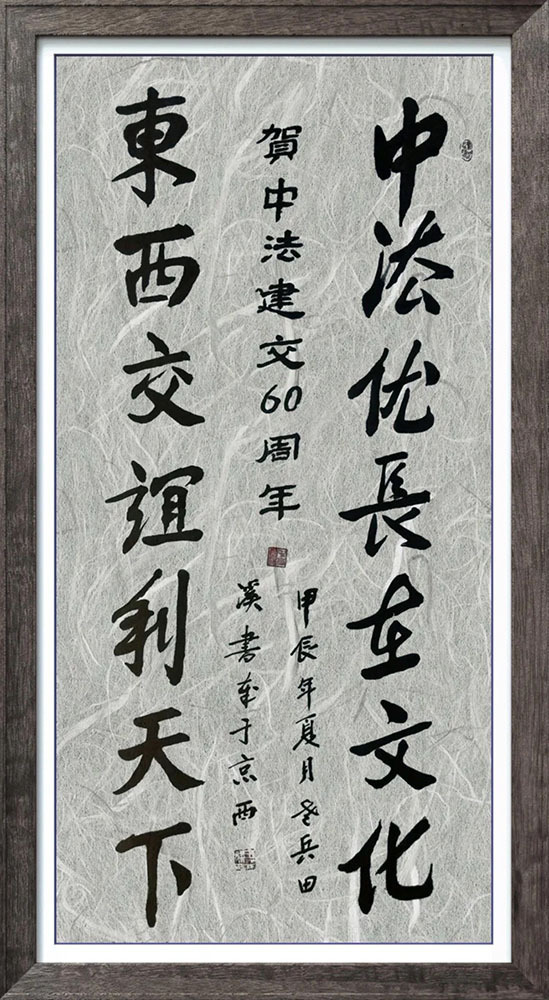 中法优長在文化
賀中法建交60周年
甲辰年夏月老兵田
溪書于京西
東西交誼利天下